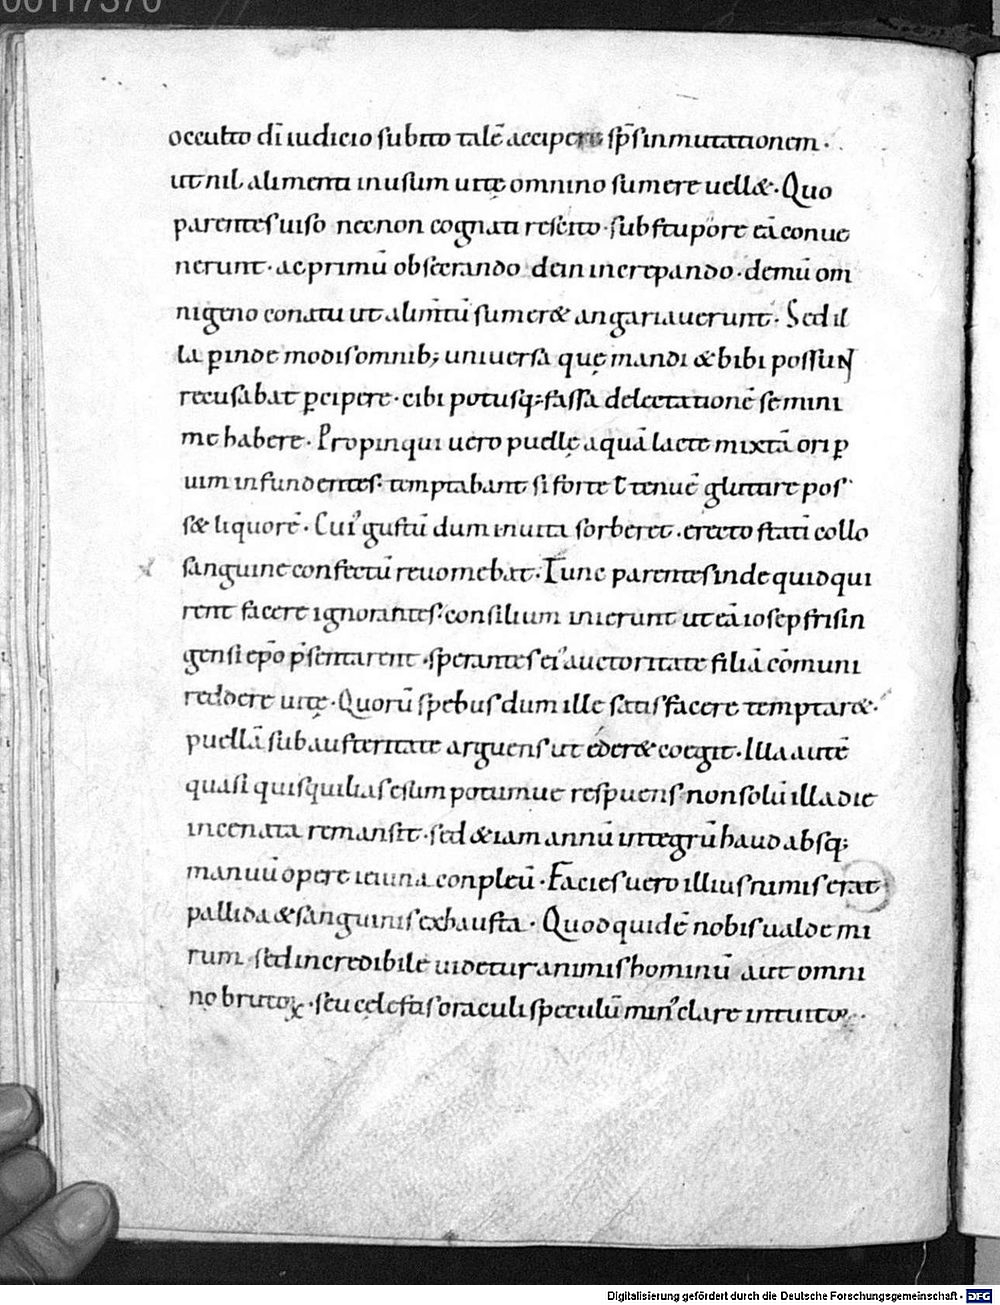 00117370
occulto dī iudicio subito talē accipere sp̄s inmutationem ·
ut nil alimenti in usum uitę omnino sumere uell& · Quo
parentes uiso necnon cognati rescito · sub stupore eā conue
nerunt · ac primū obsecrando dein increpando · demū om
nigeno conatu ut alim̄tū sumer& angariauerunt · Sed il
la ꝑinde modis omnib; uniuersa quę mandi & bibi possunt
recusabat ꝑcipere · cibi potusq; fassa delectationē se mini
me habere · Propinqui uero puellę aquā lacte mixtā ori ꝑ
uim infundentes · temptabant si forte ł tenuē gluttire pos
s& liquorē · Cui᾽ gustū dum inuita sorberet · erecto statī collo
sanguine confectū reuomebat · Tunc parentes inde quid qui
rent facere ignorantes · consilium inierunt ut eā iosep frisin
gensi ep̄o p̄sentarent · sperantes ei᾽ auctoritate filiā cōmuni
reddere uitę · Quorū spebus dum ille satisfacere temptar& ·
puellā sub austeritate arguens ut eder& coegit · Illa autē
quasi quisquilias esum potumue respuens · non solū illa die
incenata remansit · sed & iam annū integrū haud absq;
manuū opere ieiuna conpleu᷑ · Facies uero illius nimis erat
pallida & sanguinis exhausta · Quod quidē nobis ualde mi
rum · sed incredibile uidetur animis hominū aut omni
no brutoꝝ · seu cęlestis oraculi speculū min᾽ clare intuitoꝝ ·
Digitalisierung gefördert durch die Deutsche Forschungsgemeinschaft - DFG